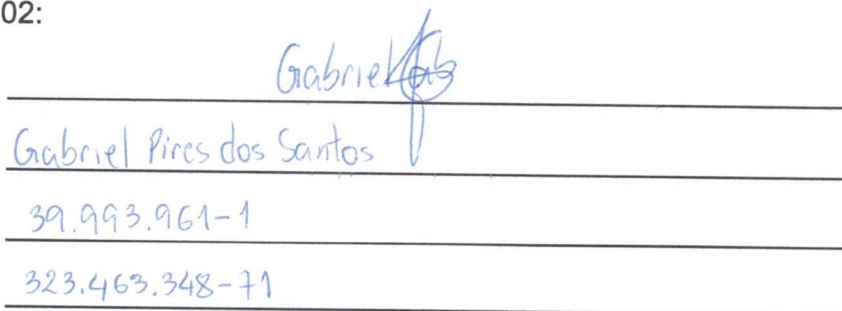 02:
Gabriel
Gabriel Pires dos Santos
39.993.961-1
323.463.348-71